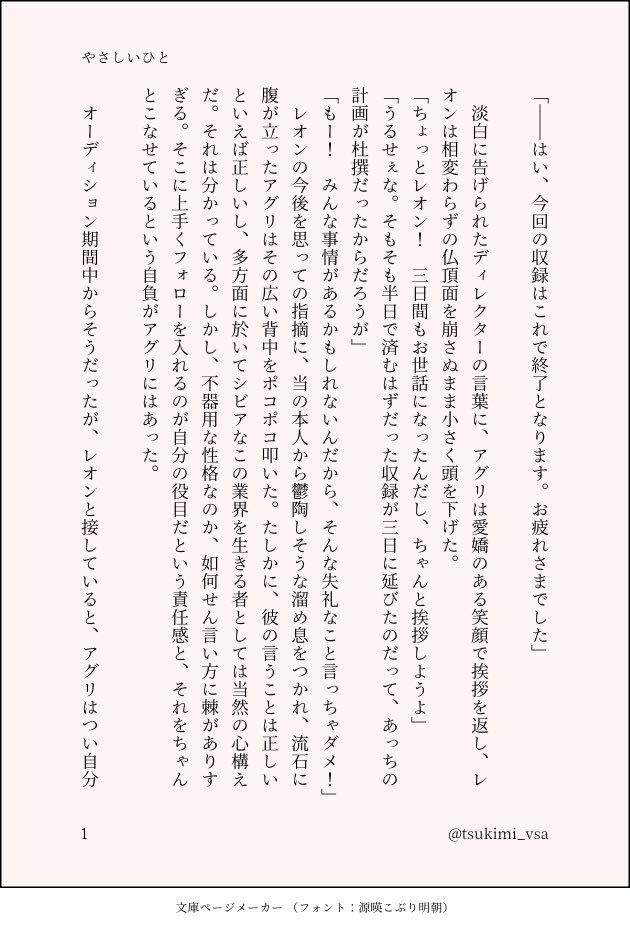 やさしいひと
「――はい、今回の収録はこれで終了となります。お疲れさまでした」
　淡白に告げられたディレクターの言葉に、アグリは愛嬌のある笑顔で挨拶を返し、レ
オンは相変わらずの仏頂面を崩さぬまま小さく頭を下げた。
「ちょっとレオン！　三日間もお世話になったんだし、ちゃんと挨拶しようよ」
「うるせぇな。そもそも半日で済むはずだった収録が三日に延びたのだって、あっちの
計画が杜撰だったからだろうが」
「もー！　みんな事情があるかもしれないんだから、そんな失礼なこと言っちゃダメ！」
　レオンの今後を思っての指摘に、当の本人から鬱陶しそうな溜め息をつかれ、流石に
腹が立ったアグリはその広い背中をポコポコ叩いた。たしかに、彼の言うことは正しい
といえば正しいし、多方面に於いてシビアなこの業界を生きる者としては当然の心構え
だ。それは分かっている。しかし、不器用な性格なのか、如何せん言い方に棘がありす
ぎる。そこに上手くフォローを入れるのが自分の役目だという責任感と、それをちゃん
とこなせているという自負がアグリにはあった。
　オーディション期間中からそうだったが、レオンと接していると、アグリはつい自分
1
@tsukimi_vsa
文庫ページメーカー （フォント：源暎こぶり明朝）